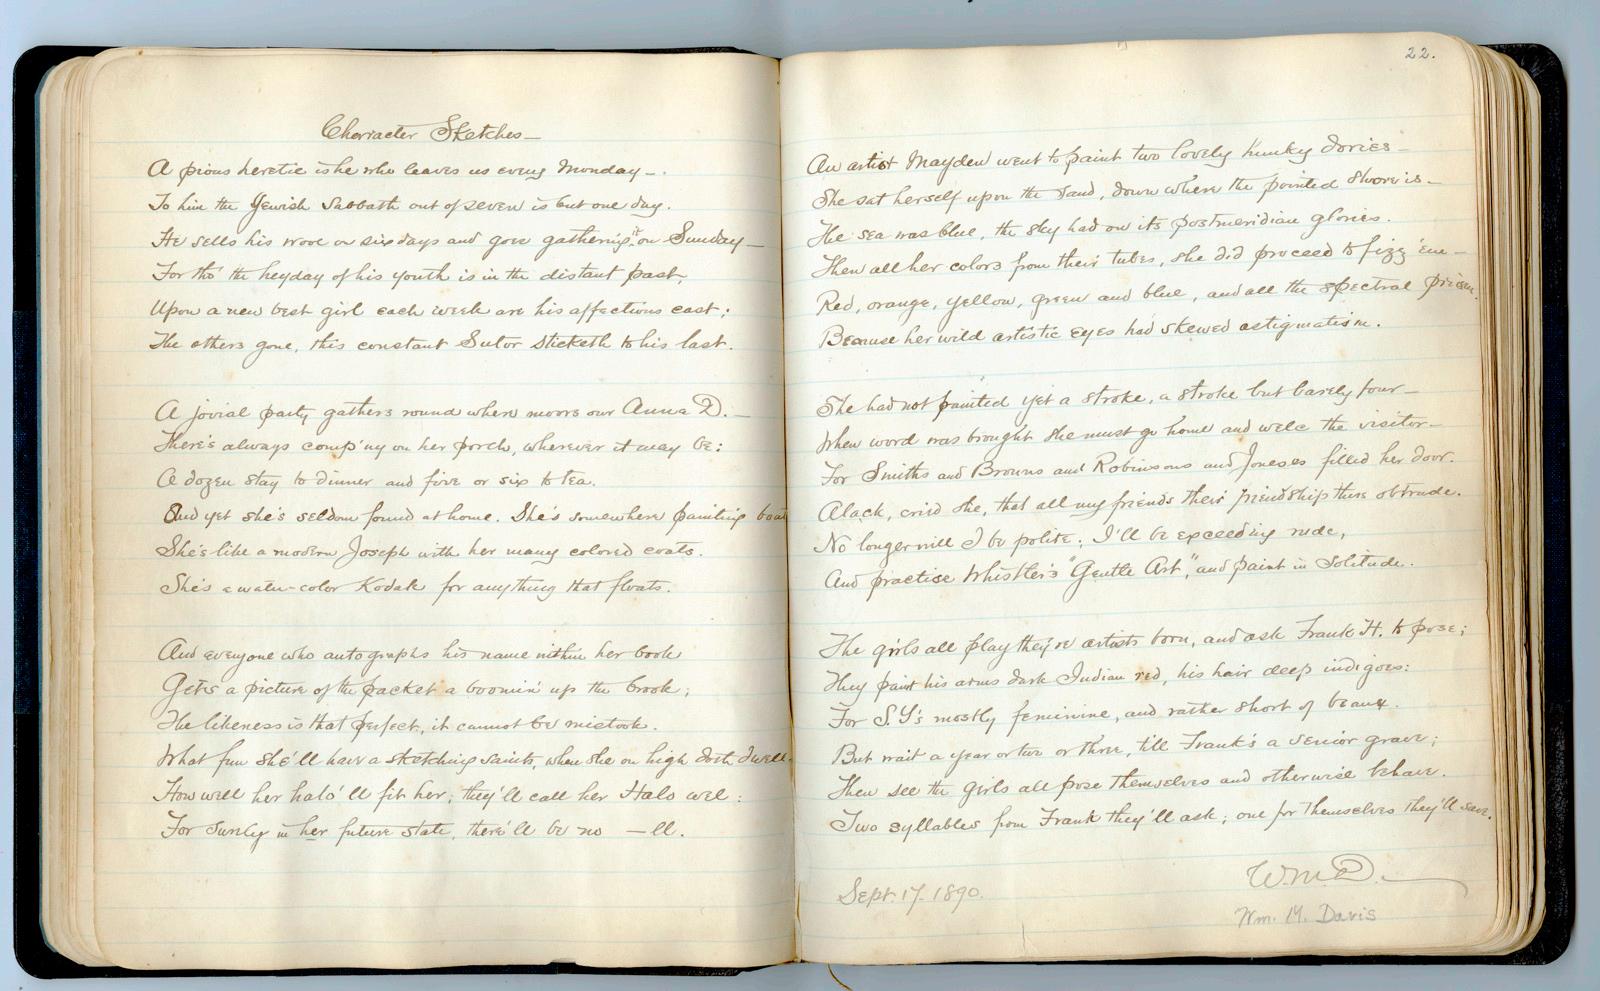 Character Sketches—
A pious heretic is he who leaves us every Monday—.
To him the Jewish Sabbath out of seven is but one day.
He sells his wool on six days and goes gathering it on Sunday—
For tho' the heyday of his youth is in the distant past,
Upon a new best girl each week are his affections cast;
The others gone, this constant Sutor sticketh to his last.
A jovial party gathers round where moors our Anna D.—
There's always comp'ny on her porch, wherever it may be:
A dozen stay to dinner and five or six to tea.
And yet she's seldom found at home. She's somewhere painting boats
She's like a modern Joseph with her many colored coats.
She's a water-color Kodak for anything that floats.
And everyone who autographs his name within her book
Gets a picture of the packet a boomin' up the brook;
The likeness is that perfect, it cannot be mistook.
What fun she'll have a sketching saints, when she on high doth dwell.
How well her halo'll fit her; they'll call her Halo well:
For surely in her future state, there'll be no —ll.
22.
An artist Mayden went to paint two lovely hunky dories—
She sat herself upon the sand, down where the pointed shore is—
The sea was blue, the sky had on its postmeridian glories.
Then all her colors from their tubes, she did proceed to fizz 'em—
Red, orange, yellow, green and blue, and all the spectral prism.
Because her wild artistic eyes had skewed astigmatism.
She had not painted yet a stroke, a stroke but barely four—
When word was brought she must go home and welc the visitor—
For Smiths and Browns and Robinsons and Joneses filled her door.
Alack, cried she, that all my friends their friendship thus obtrude.
No longer will I be polite; I'll be exceeding rude,
And practise Whistler's "Gentle Art", and paint in Solitude.
The girls all play they're artists born, and ask Frank H. to pose;
They paint his arms dark Indian red, his hair deep indigoes:
For S.Y's mostly feminine, and rather short of beaux.
But wait a year or two or three, till Frank's a senior grave;
Then see the girls all pose themselves and otherwise behave.
Two syllables from Frank they'll ask; one for themselves they'll save.
W.M.D.
Sept. 17. 1890.
Wm. M. Davis